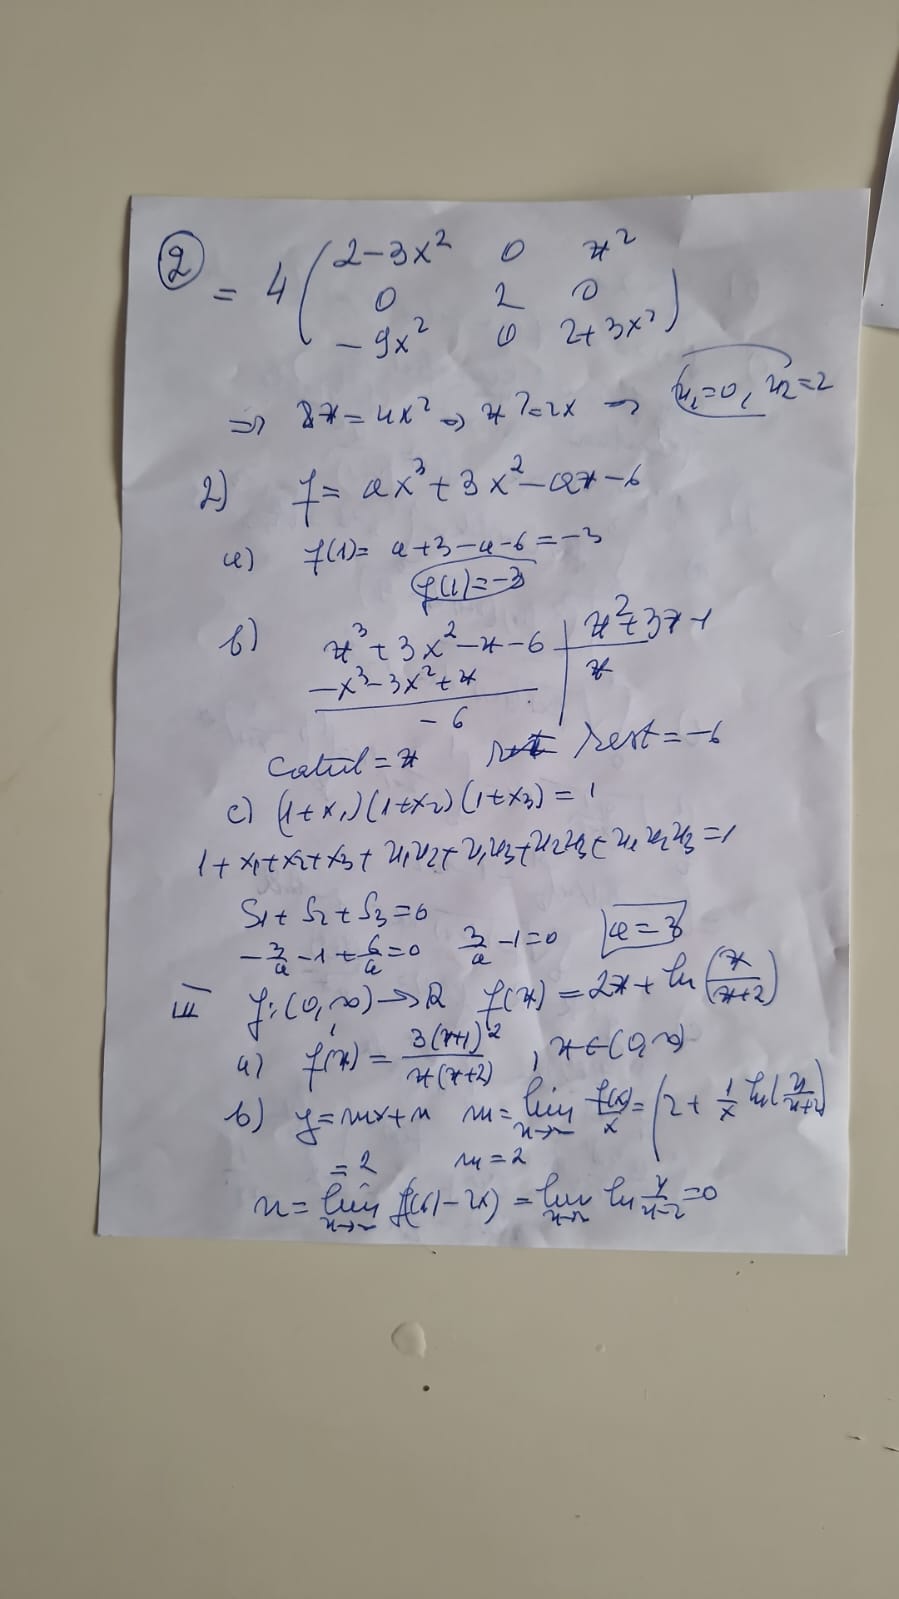 ②
= 4 ( 2-3x² 0 x²
0 2 0
-9x² 0 2+3x² )
⇒ 8x = 4x² ⇒ x² = 2x ⇒ x₁=0, x₂=2
2) f = ax³ + 3x² - ax - 6
a) f(1) = a+3-a-6 = -3
f(1) = -3
b) x³ + 3x² - x - 6 | x² + 3x - 1
-x³ - 3x² + x | x
- 6
Catul = x rest = -6
c) (1+x₁)(1+x₂)(1+x₃) = 1
1 + x₁+x₂+x₃ + x₁x₂+x₁x₃+x₂x₃+x₁x₂x₃ = 1
S₁ + S₂ + S₃ = 0
-3/a - 1 + 6/a = 0 3/a - 1 = 0 a = 3
III f: (0,∞) → R f(x) = 2x + ln (x/(x+2))
a) f'(x) = 2(x+1)²/(x(x+2)), x ∈ (0,∞)
b) y = mx + n m = lim x→∞ f(x)/x = (2 + 1/x ln(x/(x+2))
= 2 m = 2
n = lim x→∞ f(x) - 2x) = lim x→∞ ln x/(x-2) = 0